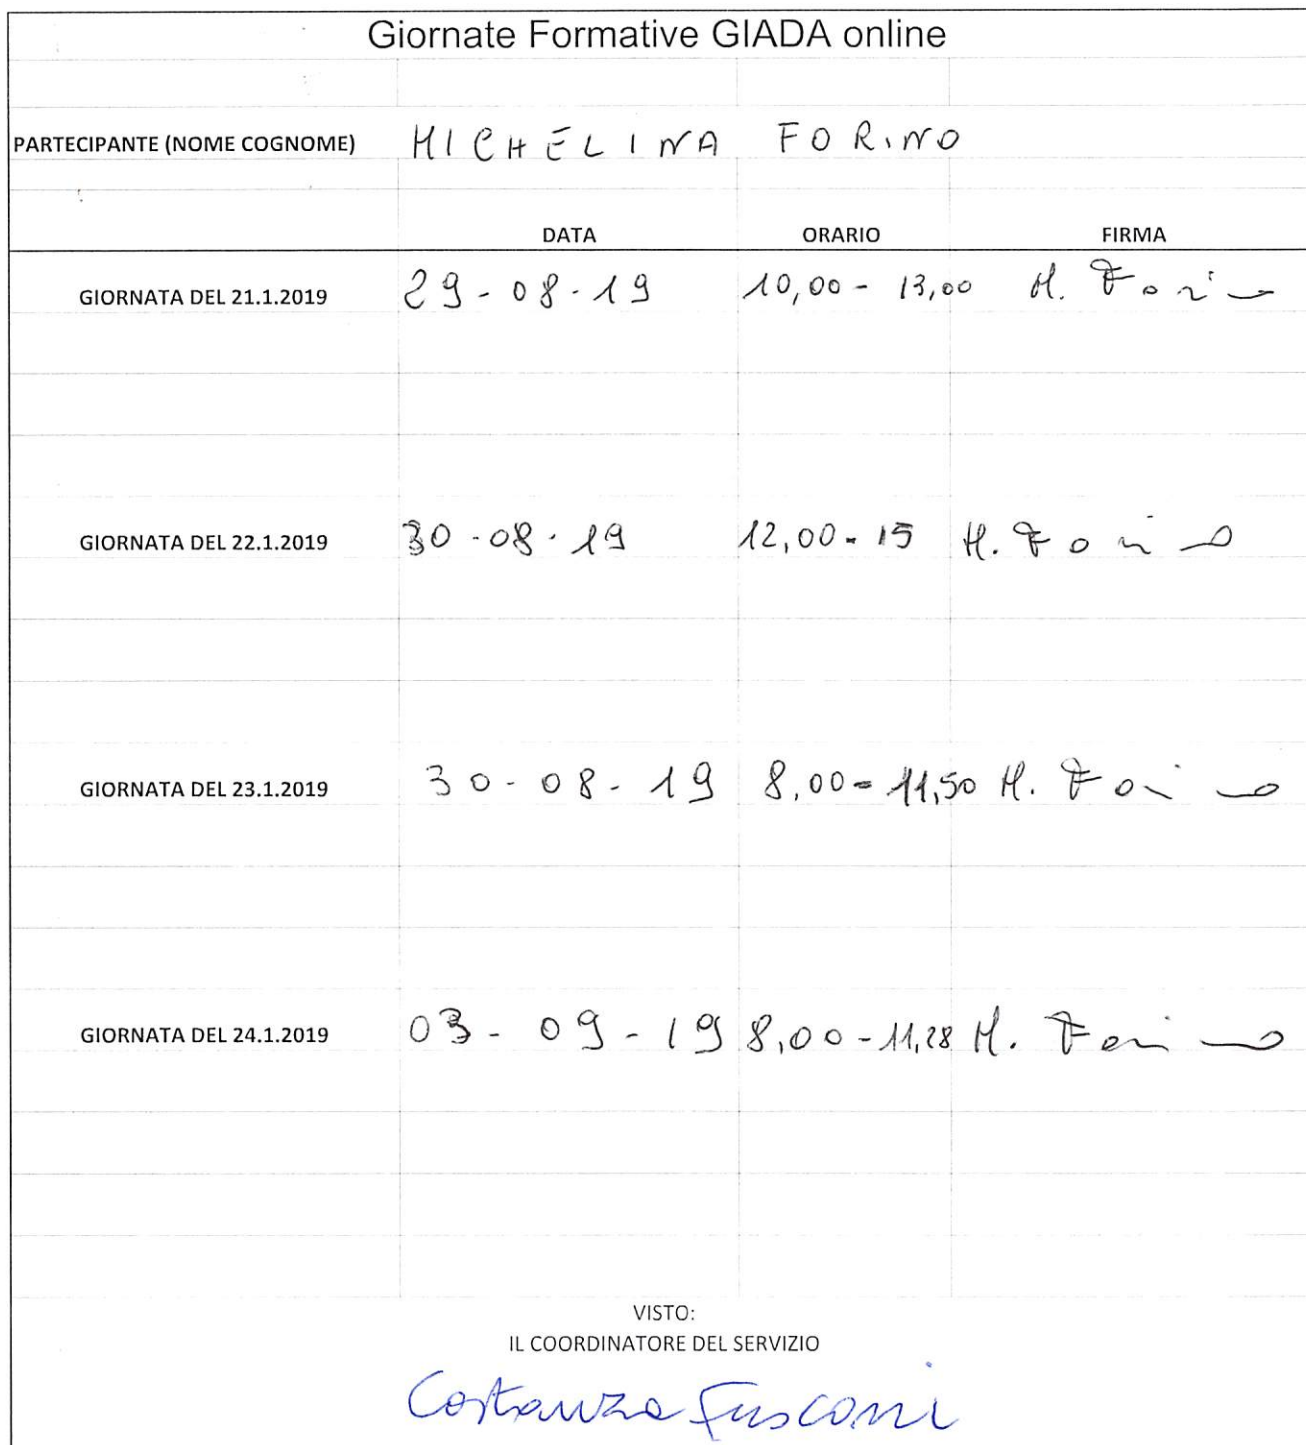 Giornate Formative GIADA online
PARTECIPANTE (NOME COGNOME) MICHELINA FORINO
DATA ORARIO FIRMA
GIORNATA DEL 21.1.2019 29-08-19 10,00-13,00 M. Forino
GIORNATA DEL 22.1.2019 30-08-19 12,00-15 M. Forino
GIORNATA DEL 23.1.2019 30-08-19 8,00-11,50 M. Forino
GIORNATA DEL 24.1.2019 03-09-19 8,00-11,28 M. Forino
VISTO:
IL COORDINATORE DEL SERVIZIO
Costanza Fusconi